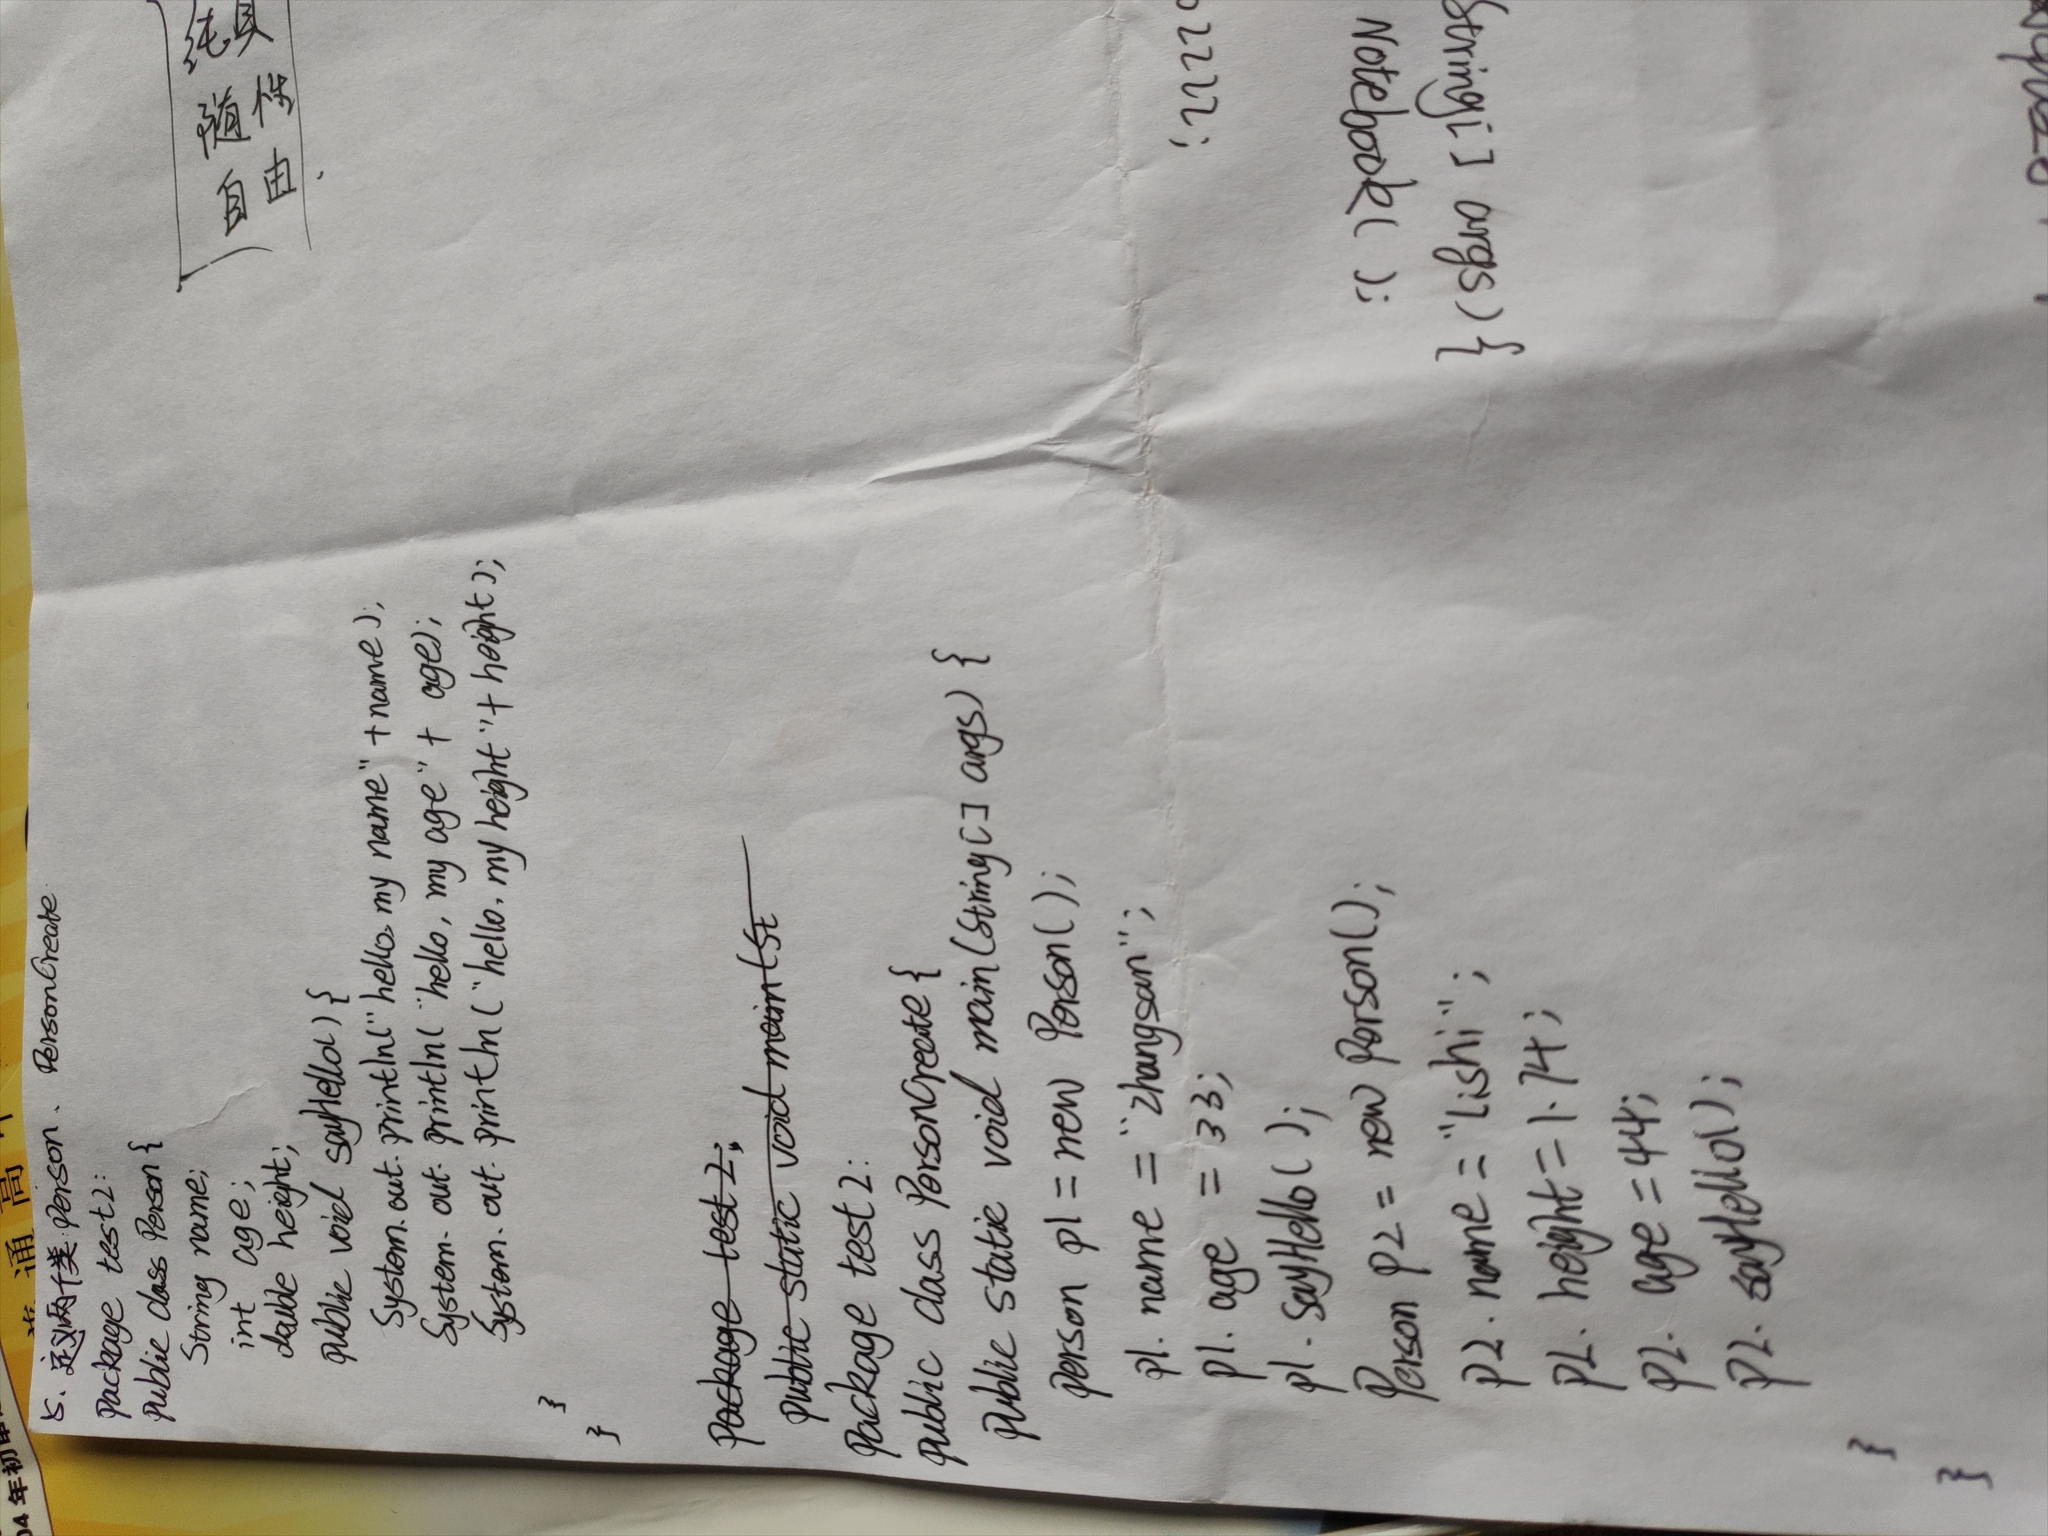 5. 这两个类: Person、PersonCreate
package test2:
public class Person {
String name;
int age;
double height;
public void sayHello() {
System.out.println("hello. my name" + name);
System.out.println("hello, my age" + age);
System.out.println("hello. my height" + height);
}
}
package test2;
public static void main(St
package test2:
public class PersonCreate {
public static void main(String[] args) {
Person p1 = new Person();
p1.name = "zhangsan";
p1.age = 33;
p1.sayHello();
Person p2 = new Person();
p2.name = "Lishi";
p2.height = 1.74;
p2.age = 44;
p2.sayHello();
}
}
纯真
随性
自由.
222;
Notebook();
String[] args) {
04年初
通高